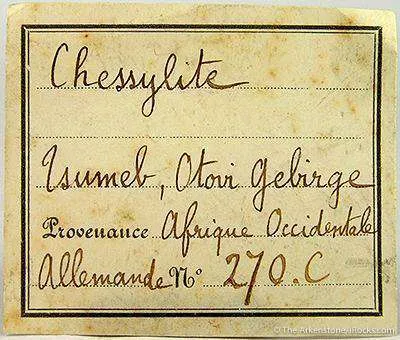 Chessylite
Tsumeb, Otovi Gebirge
Provenance Afrique Occidentale
Allemande No 270.C
© The Arkenstone, iRocks.com